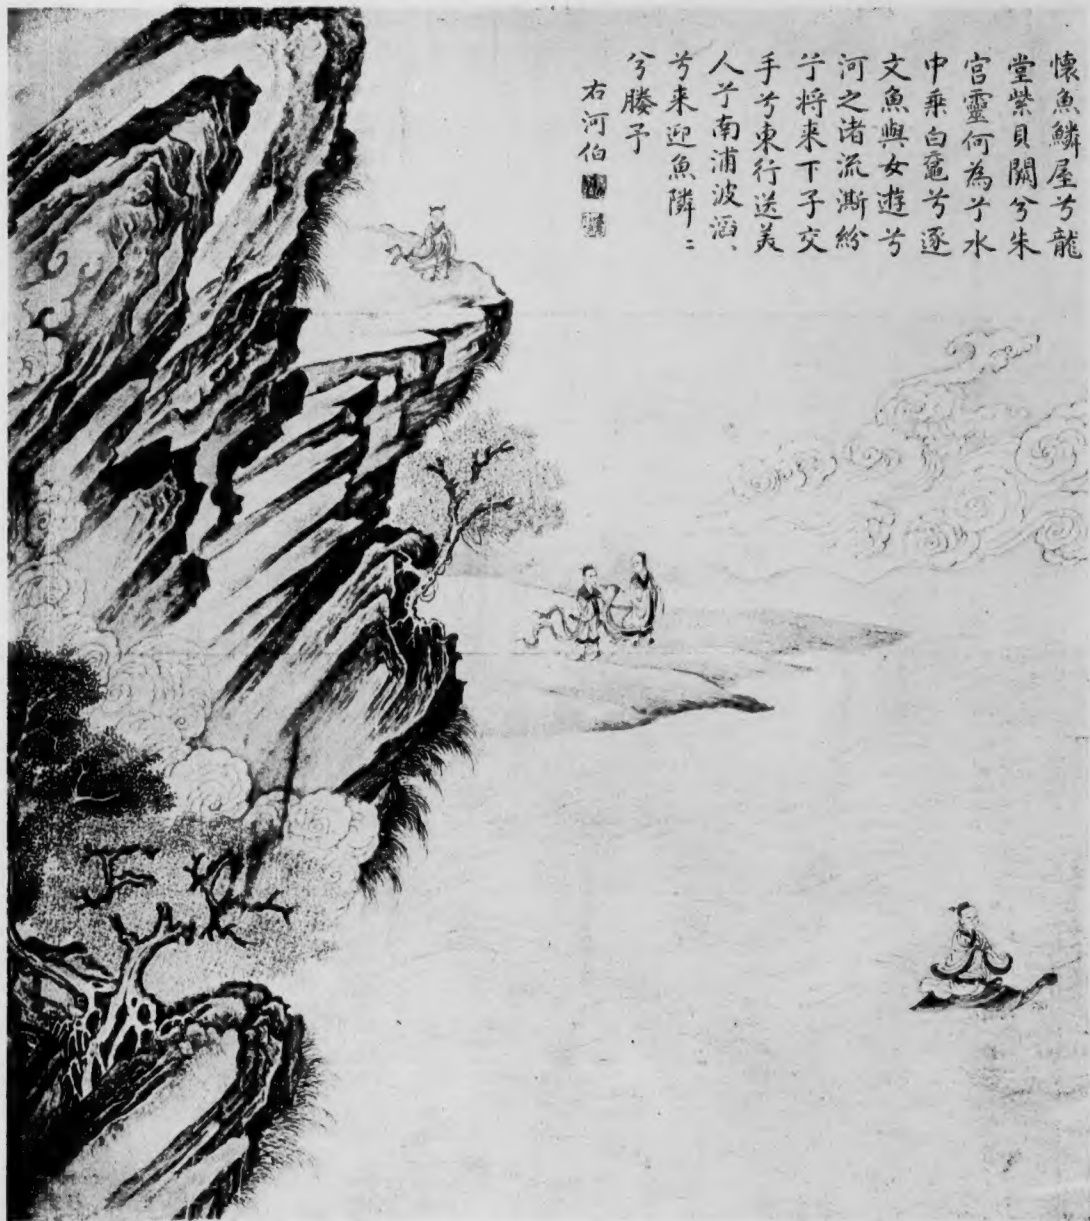 懷魚鱗屋兮龍
堂紫貝闕兮朱
宮靈何為兮水
中乘白黿兮逐
文魚與女遊兮
河之渚流澌紛
兮将来下子交
手兮東行送美
人兮南浦波滔、
兮来迎魚隣〻
兮媵予
右河伯